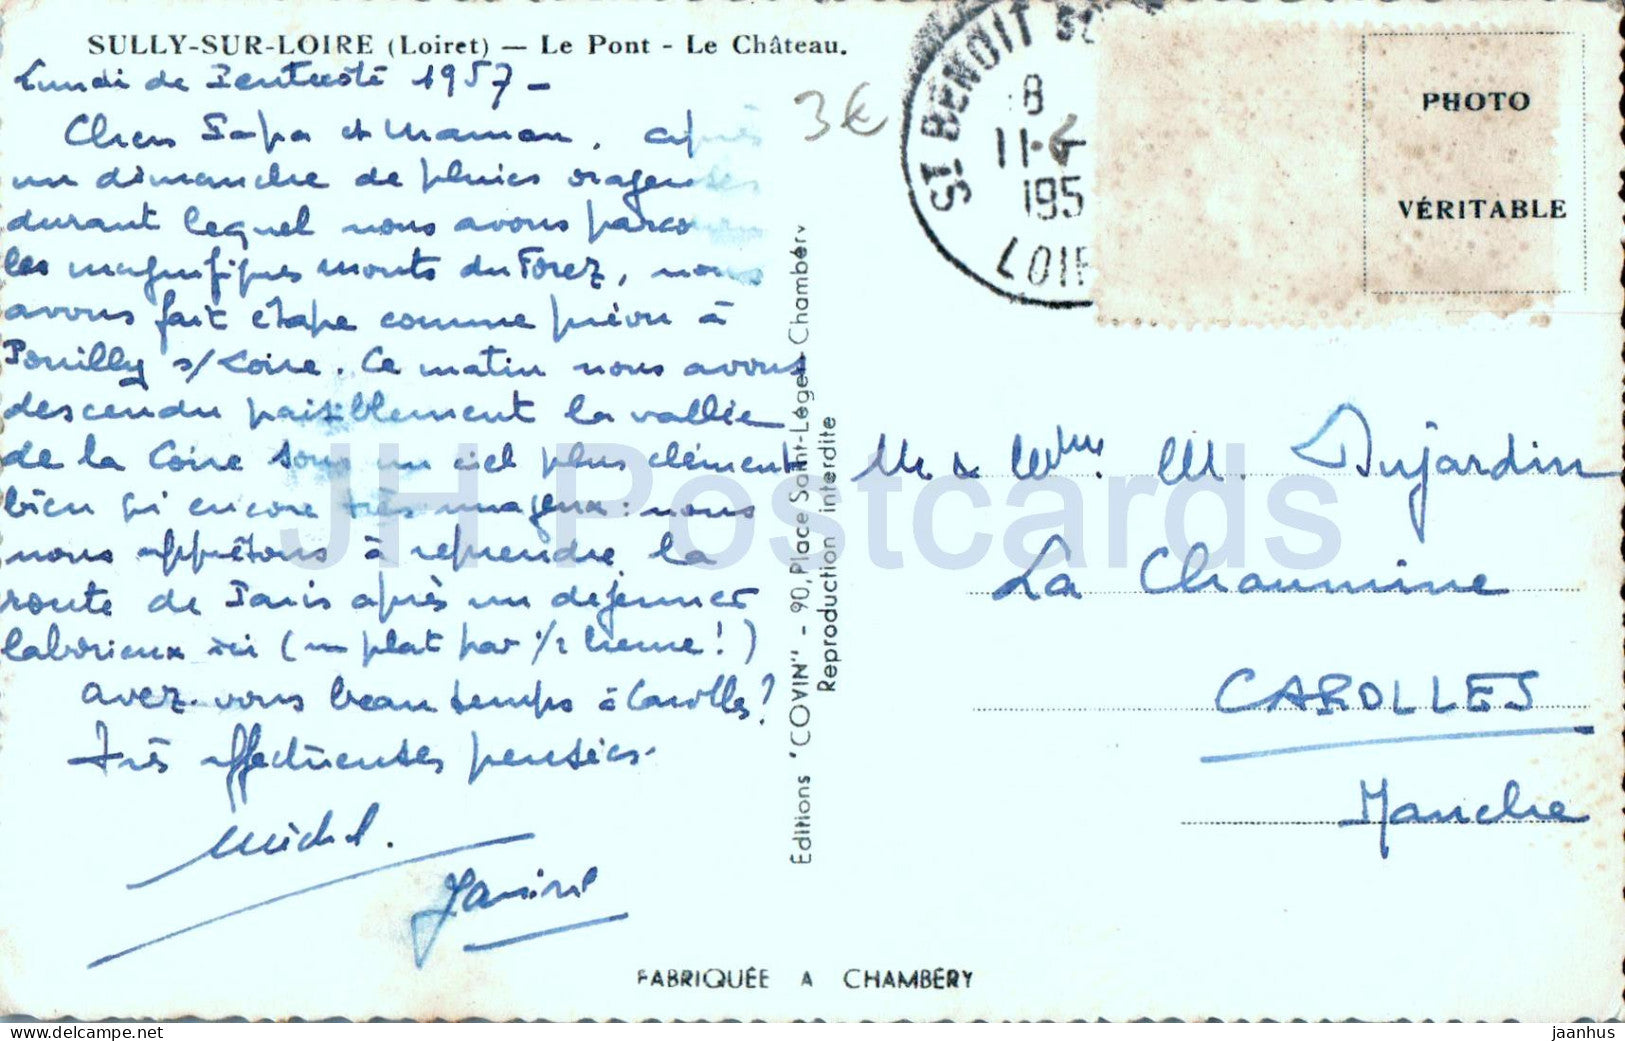 SULLY-SUR-LOIRE (Loiret) — Le Pont - Le Château.
Lundi de Pentecôte 1957 -
Chers Papa et Maman, après
un dimanche de pluies orageuses
durant lequel nous avons parcouru
les magnifiques monts du Forez, nous
avons fait étape comme prévu à
Pouilly s/Loire. Ce matin nous avons
descendu paisiblement la vallée
de la Loire sous un ciel plus clément
bien qu'encore très nuageux : nous
nous apprêtons à reprendre la
route de Paris après un déjeuner
laborieux ici (un plat par 1/2 heure !)
Avez-vous beau temps à Carolles ?
Très affectueuses pensées.
Michel.
Janine
3€
ST BENOIT
8
11-6
195
LOIR
PHOTO
VÉRITABLE
M & Mme. M. Dujardin
La Chaumine
CAROLLES
Manche
Editions "COVIN" - 90, Place Saint-Léger Chambéry
Reproduction interdite
FABRIQUÉE A CHAMBÉRY
JH Postcards
delcampe.net
jaanhus